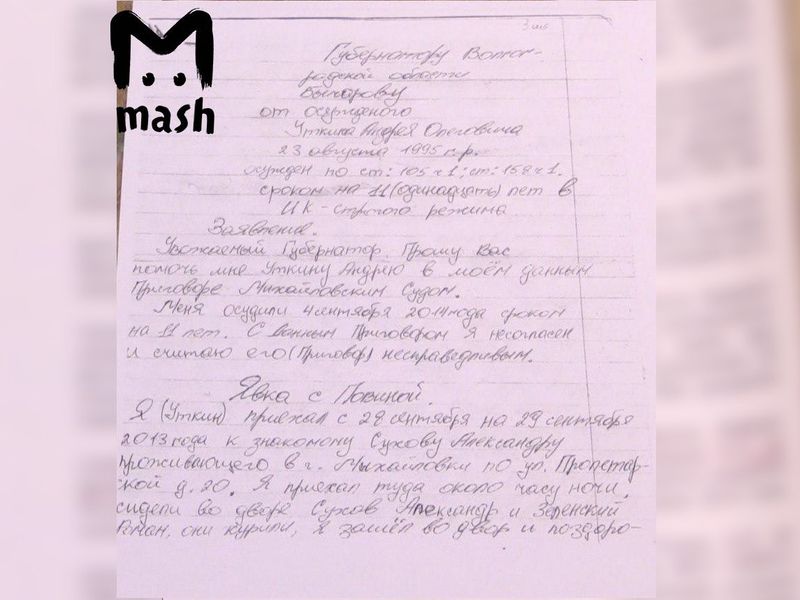 mash
3 шт
Губернатору Волгог-
радской области
Бычарову
от осужденого
Уткина Андрея Олеговича
23 августа 1995 г.р.
осужден по ст: 105 ч 1; ст: 158 ч 1.
сроком на 11 (одинадцать) лет в
ИК-строгого режима
Заявление.
Уважаемый Губернатор. Прошу Вас
помочь мне Уткину Андрею в моём данным
Приговоре Михайловским Судом.
Меня осудили 4 сентября 2014 года сроком
на 11 лет. С данным Приговором я несогласен
и считаю его (Приговор) несправедливым.
Явка с Повиной.
Я (Уткин) приехал с 28 сентября на 29 сентября
2013 года к знакомому Сухову Александру
проживающего в г. Михайловки по ул. Пролетар-
ской д. 20. Я приехал туда около часу ночи.
сидели во дворе Сухов Александр и Зеленский
Роман, они курили, Я зашёл во двор и поздоро-